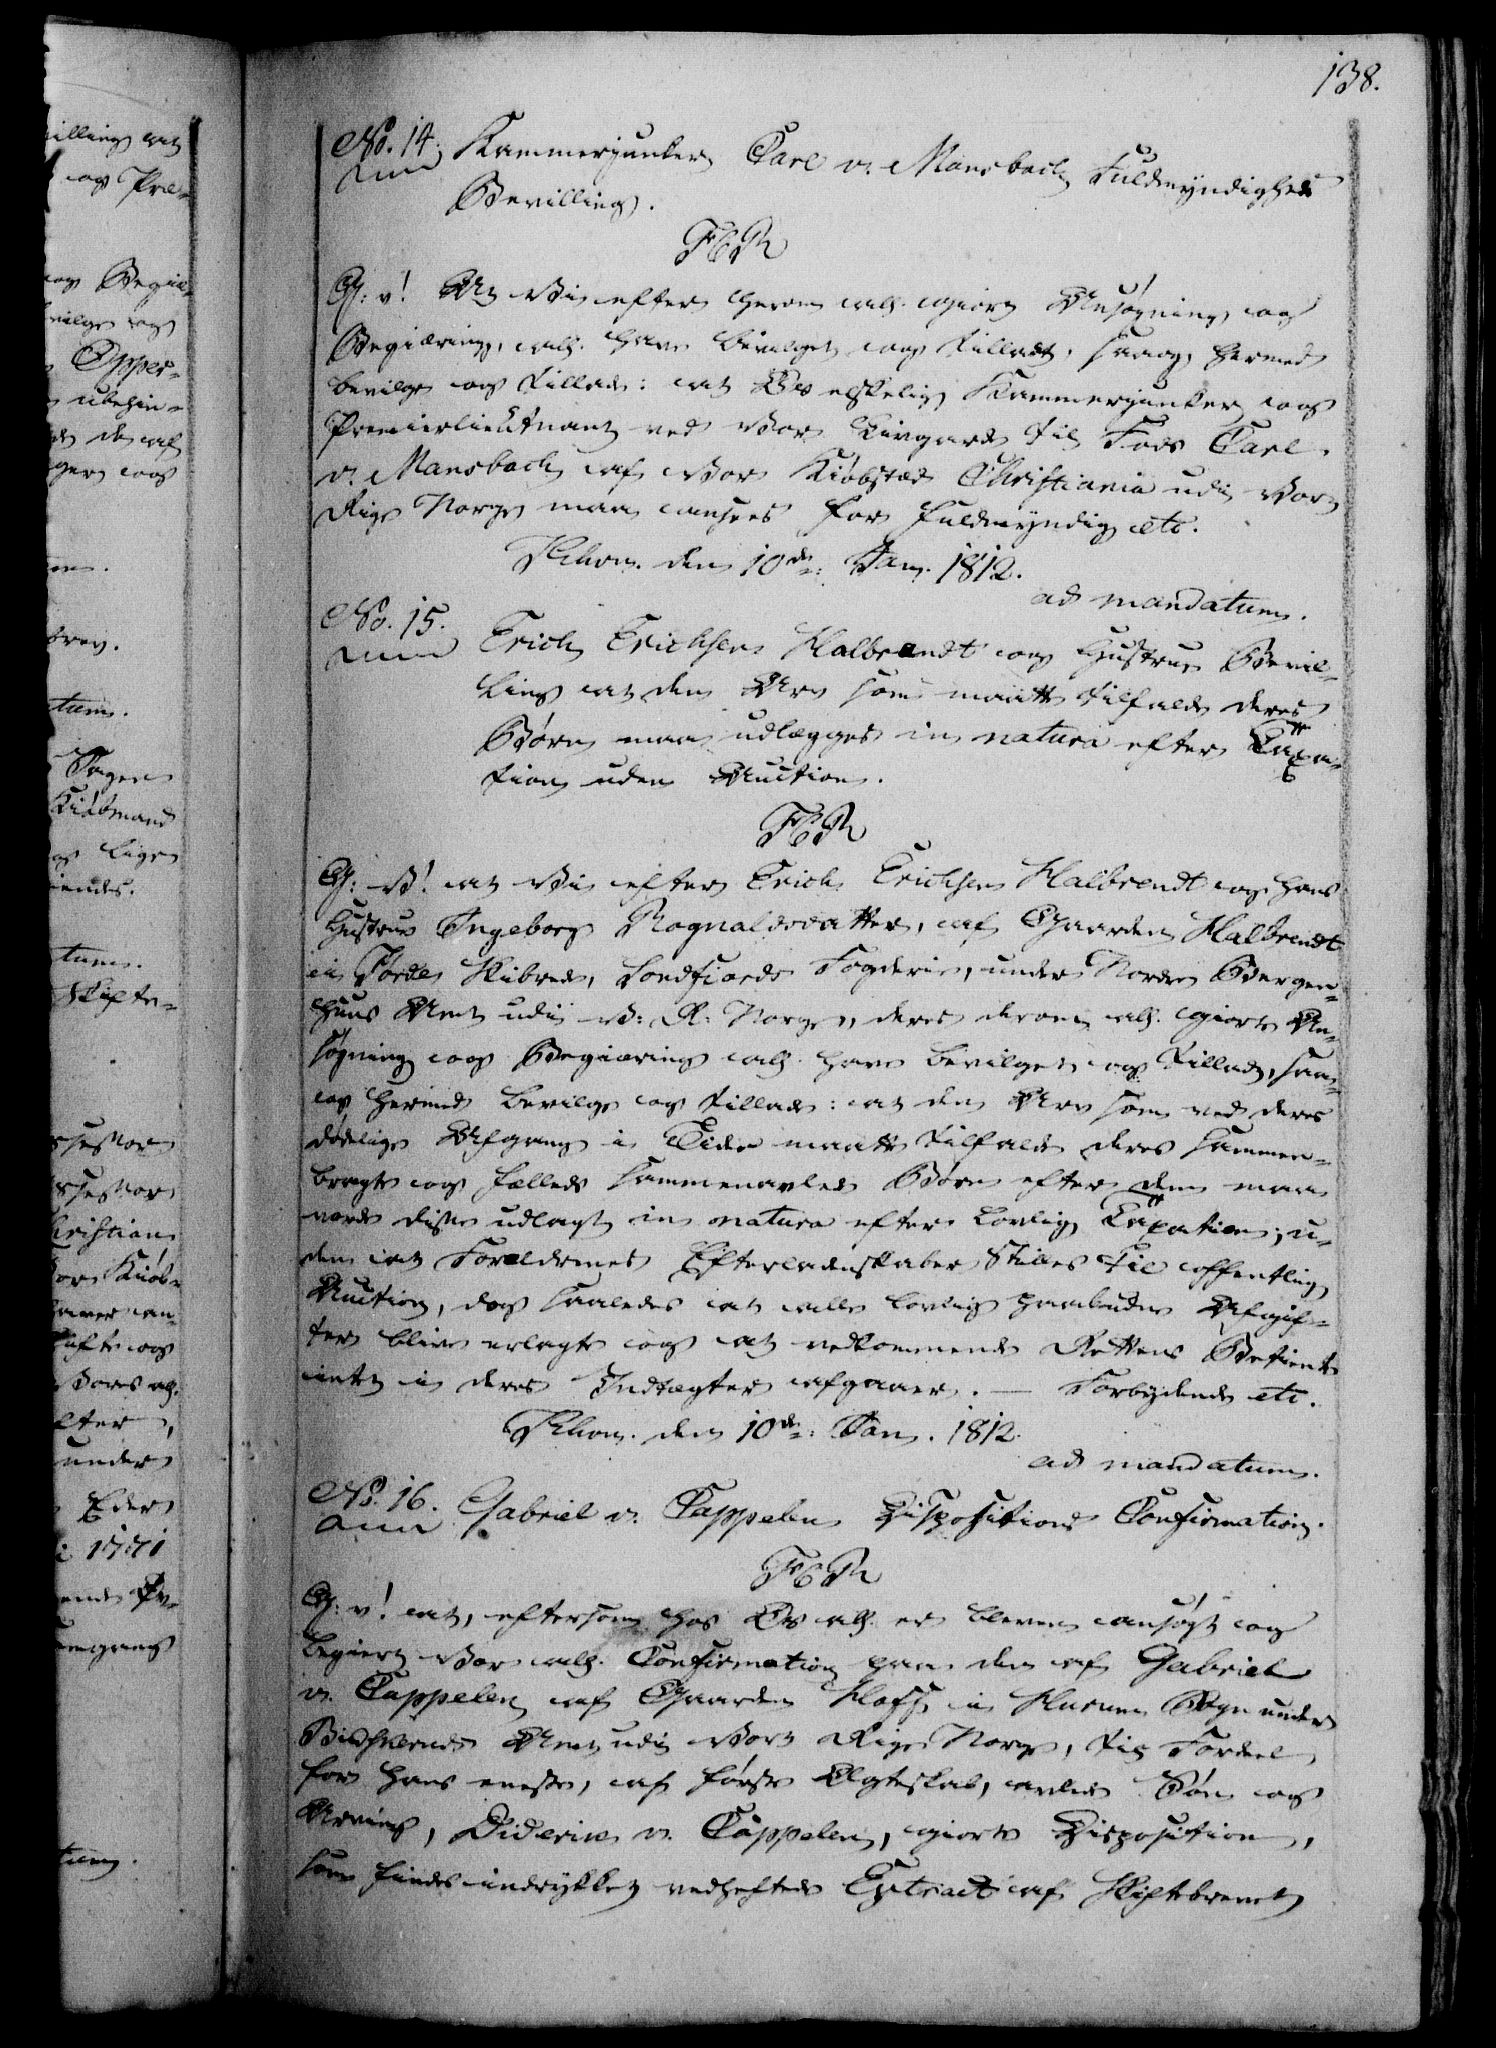 138.
No. 14. Kammerjunker Carl v. Mansbach Fuldmyndigheds
Bevilling.
F6R
G: v! At Vi efter herom all. giort Ansøgning og
Begiæring, all. have bevilget og tilladt, saa og hermed
bevilge og tillade: at Os elskelig Kammerjunker og
Premierlieutnant ved Vor Livgarde til Fods Carl
v. Mansbach af Vor Kiøbstæd Christiania udi Vort
Rige Norge maa ansees for fuldmyndig etc.
Kbhvn. den 10de Jan. 1812.
ad mandatum.
No. 15. Erich Erichsen Halbrendt og Hustrue Bevil-
ling at den Arv som maatte tilfalde deres
Børn maa udlægges in natura efter Taxa-
tion uden Auction.
F6R
G: V! at Vi efter Erich Erichsen Halbrendt og hans
Hustrue Ingeborg Rognaldsdatter, af Gaarden Halbrendt
i Førde Skibrede, Søndfiords Fogderie, under Nordre Bergen-
huus Amt udi V: R: Norge, deres derom all. giorte An-
søgning og Begiæring all. have bevilget og tilladt, saa
og hermed bevilge og tillade: at den Arv som ved deres
dødelige Afgang i Tiden maatte tilfalde deres sammen-
bragte og fælleds sammenavlede Børn efter dem maa
vorde disse udlagt in natura efter lovlig Taxation, u-
den at Forældrenes Efterladenskaber stilles til offentlig
Auction, dog saaledes at alle lovlig paabudne Afgif-
ter blive erlagte og at vedkommende Rettens Betiente
intet i deres Indtægter afgaaer. — Forbydende etc.
Kbhvn. den 10de Jan. 1812.
ad mandatum.
No. 16. Gabriel v. Cappelen Dispositions Confirmation.
F6R
G: v! at, eftersom hos Os all. er bleven ansøgt og
begiert Vor all. Confirmation paa den af Gabriel
v. Cappelen af Gaarden Hoff i Hurum Sogn under
Buskeruds Amt udi Vort Rige Norge, til Fordeel
for hans eneste, af første Ægteskab, avlede Søn og
Arving, Diderich v. Cappelen, giorte Disposition,
som findes indrykket vedheftede Extract af Skiftebrevet